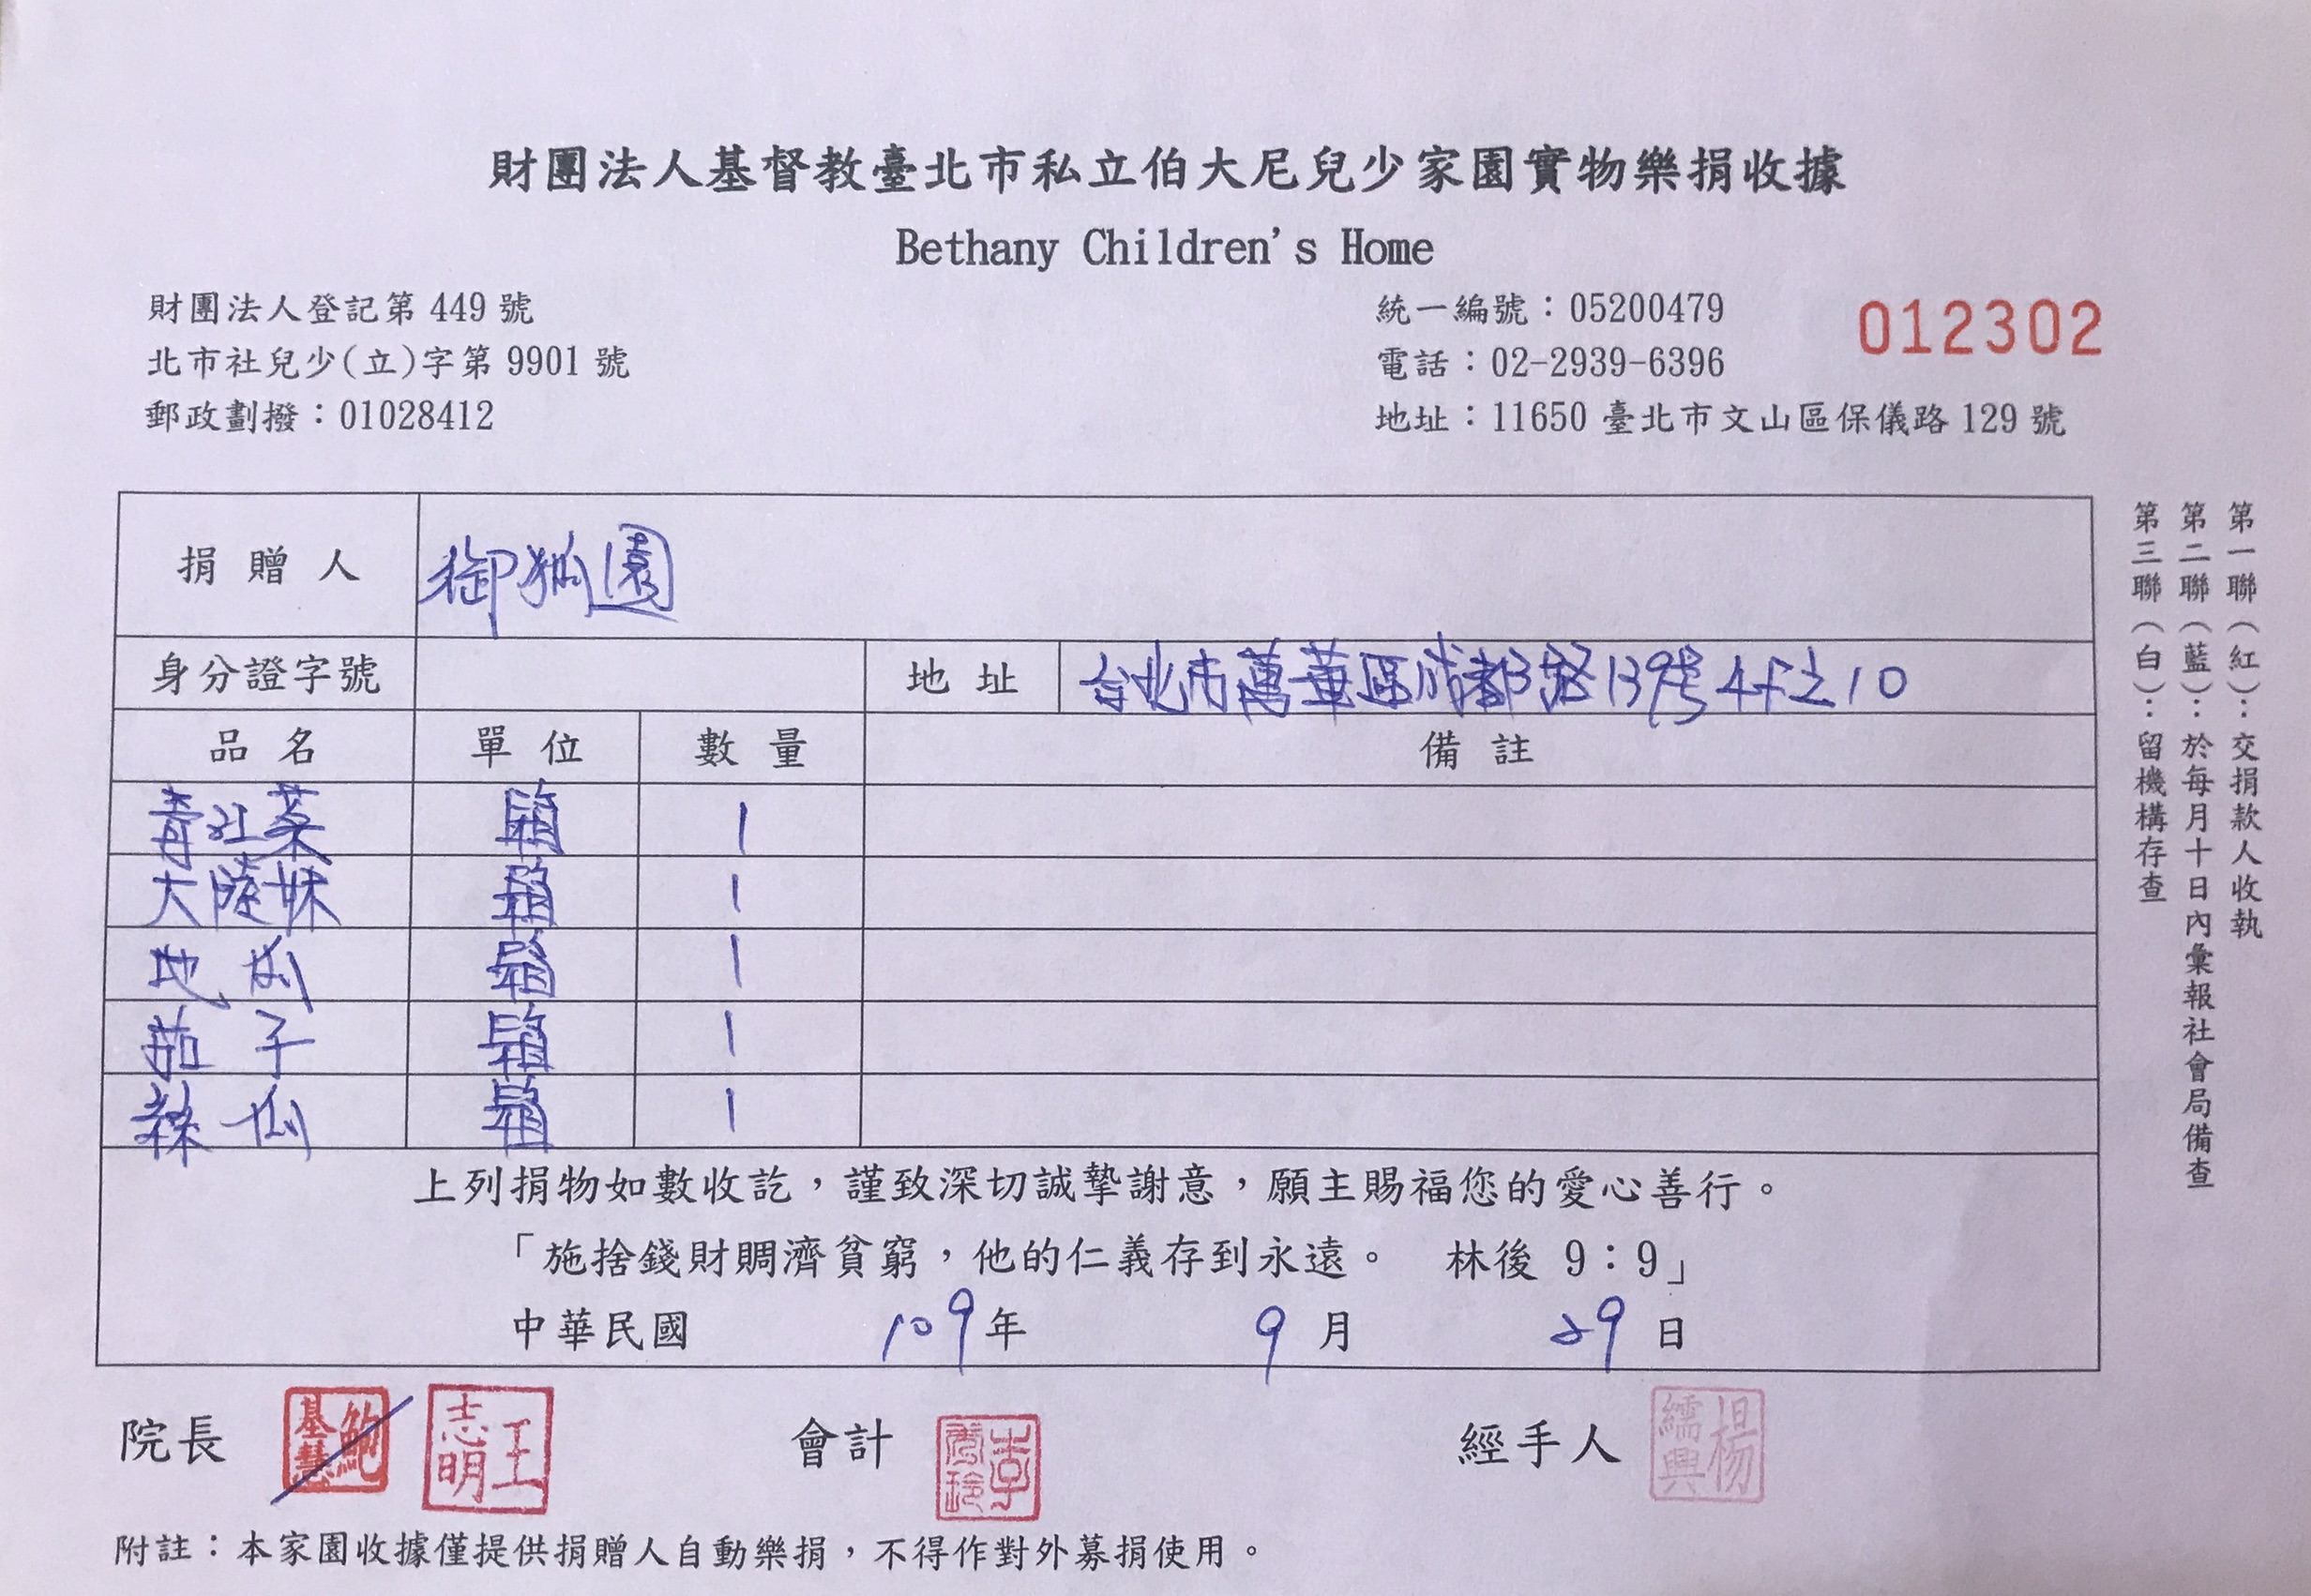 財團法人基督教臺北市私立伯大尼兒少家園實物樂捐收據
Bethany Children's Home
財團法人登記第 449 號
北市社兒少(立)字第 9901 號
郵政劃撥：01028412
統一編號：05200479
電話：02-2939-6396
地址：11650 臺北市文山區保儀路 129 號
012302
捐贈人 御狐園
身分證字號 地址 台北市萬華區成都路139號4F之10
品名 單位 數量 備註
青江菜 箱 1
大陸妹 箱 1
地瓜 箱 1
茄子 箱 1
絲瓜 箱 1
上列捐物如數收訖，謹致深切誠摯謝意，願主賜福您的愛心善行。
「施捨錢財賙濟貧窮，他的仁義存到永遠。 林後 9：9」
中華民國 109年 9月 29日
第一聯（紅）：交捐款人收執
第二聯（藍）：於每月十日內彙報社會局備查
第三聯（白）：留機構存查
院長 鮑基慧 王志明 會計 李秀玲 經手人 楊繻興
附註：本家園收據僅提供捐贈人自動樂捐，不得作對外募捐使用。